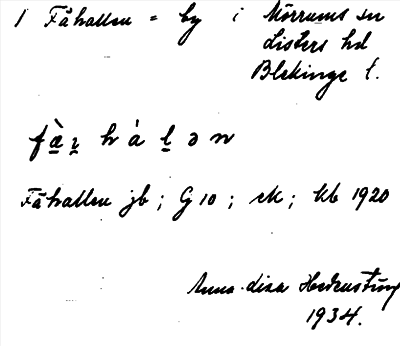 1 Fåhallen = by i Mörrums sn
Listers hd
Blekinge l.
fà̱ɪ̱ h á ḻ ə n
Fåhallen jb ; G 10 ; ek ; kb 1920
Anna-Lisa
1934.